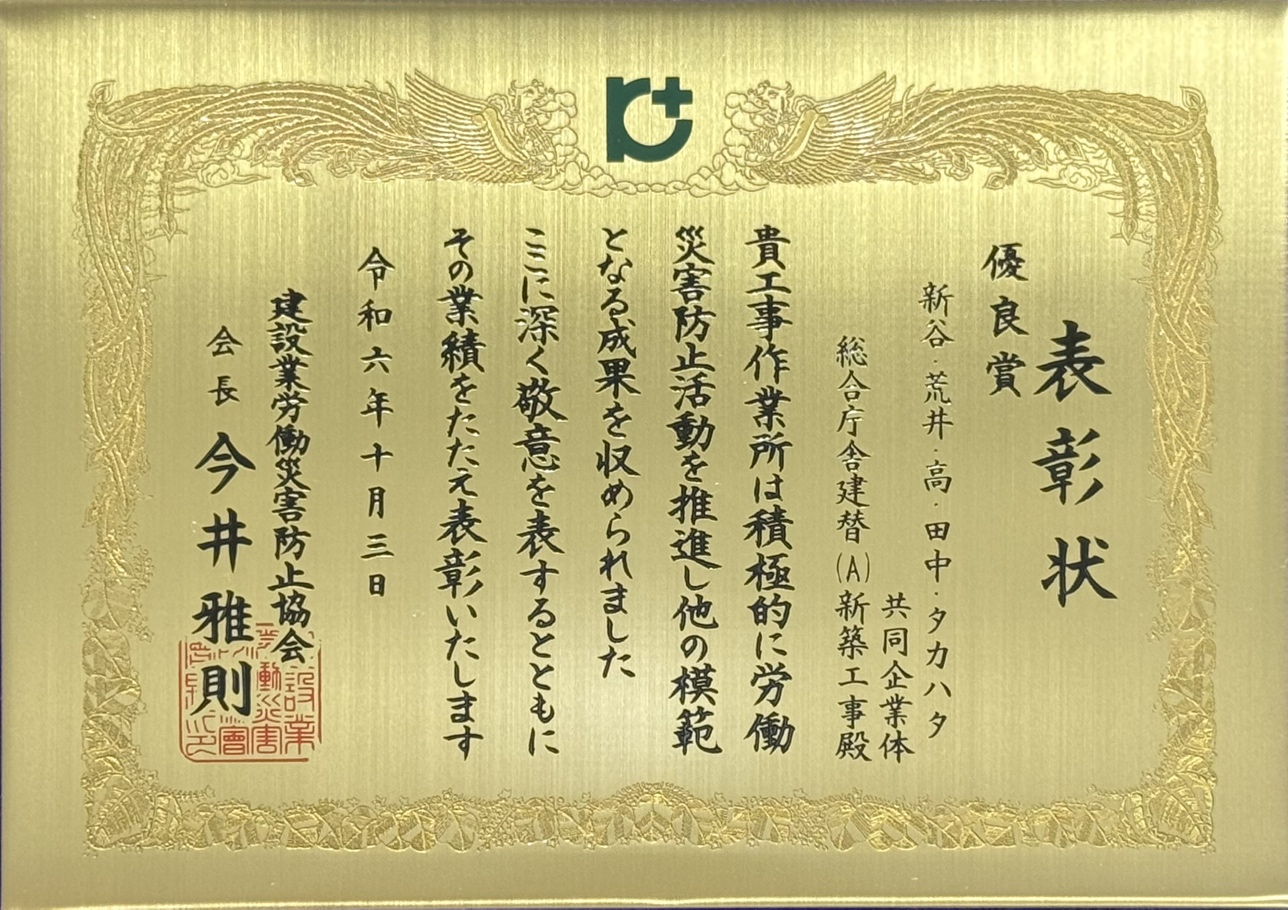 表彰状
優良賞
新谷・荒井・高・田中・タカハタ
共同企業体
総合庁舎建替(A)新築工事殿
貴工事作業所は積極的に労働
災害防止活動を推進し他の模範
となる成果を収められました
ここに深く敬意を表するとともに
その業績をたたえ表彰いたします
令和六年十月三日
建設業労働災害防止協会
会長 今井雅則